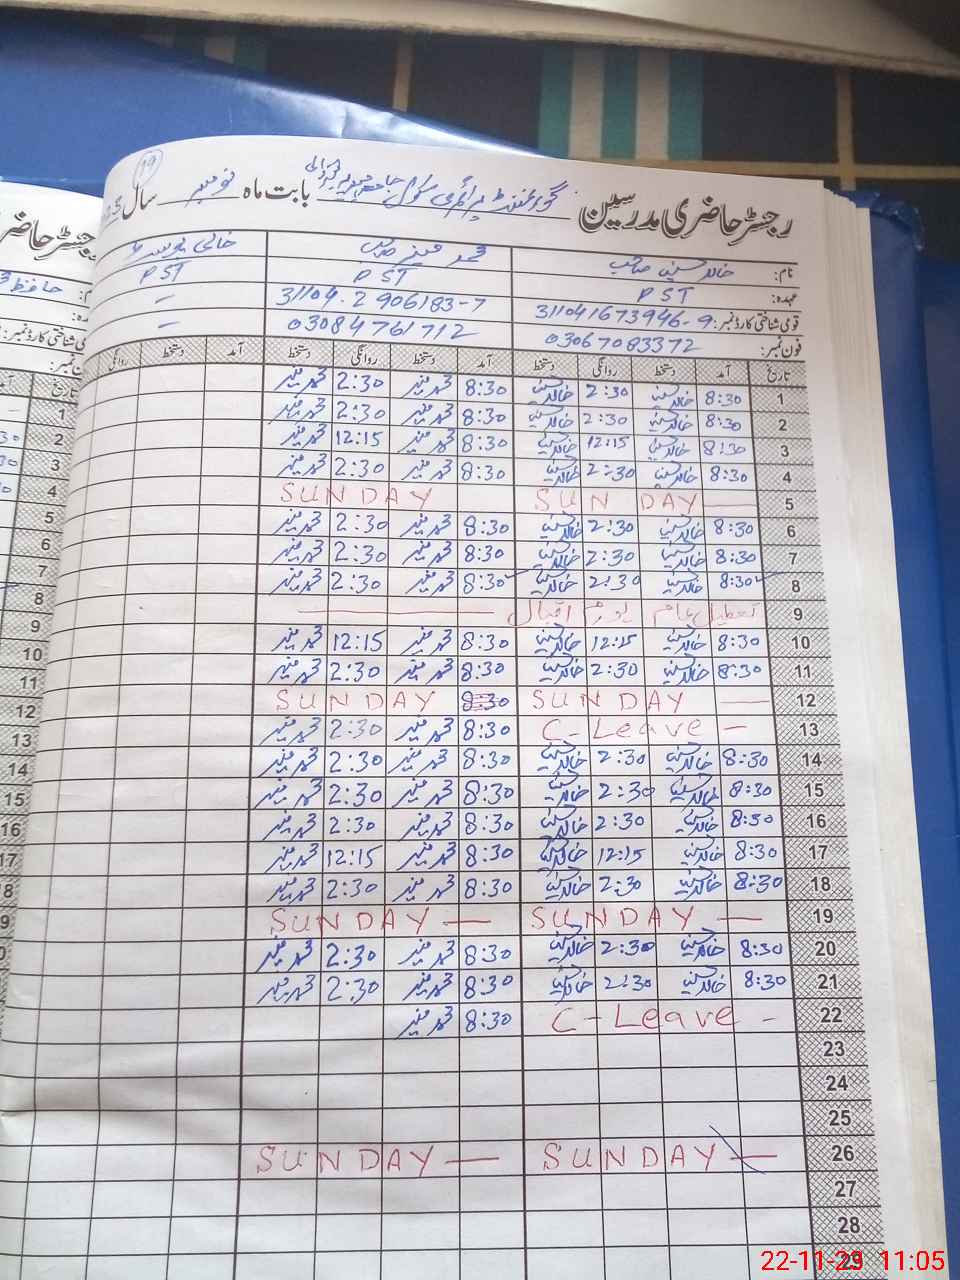 19
رجسٹر حاضری مدرسین گورنمنٹ پرائمری سکول بابت ماہ نومبر سال
نام: خالد حسین صاحب محمد منیر صاحب خالی پوسٹ
عہدہ: PST PST PST
قومی شناختی کارڈ نمبر: 311041673946-9 31104.2906183-7 -
فون نمبر: 03067083372 03084761712 -
تاریخ آمد دستخط روانگی دستخط آمد دستخط روانگی دستخط آمد دستخط روانگی
1 8:30 خالد حسین 2:30 خالد حسین 8:30 محمد منیر 2:30 محمد منیر
2 8:30 خالد حسین 2:30 خالد حسین 8:30 محمد منیر 2:30 محمد منیر
3 8:30 خالد حسین 12:15 خالد حسین 8:30 محمد منیر 12:15 محمد منیر
4 8:30 خالد حسین 2:30 خالد حسین 8:30 محمد منیر 2:30 محمد منیر
5 SUNDAY — SUNDAY
6 8:30 خالد حسین 2:30 خالد حسین 8:30 محمد منیر 2:30 محمد منیر
7 8:30 خالد حسین 2:30 خالد حسین 8:30 محمد منیر 2:30 محمد منیر
8 8:30 خالد حسین 2:30 خالد حسین 8:30 محمد منیر 2:30 محمد منیر
9 تعطیل عام یوم اقبال —
10 8:30 خالد حسین 12:15 خالد حسین 8:30 محمد منیر 12:15 محمد منیر
11 8:30 خالد حسین 2:30 خالد حسین 8:30 محمد منیر 2:30 محمد منیر
12 SUNDAY — 8:30 SUNDAY
13 C-Leave - 8:30 محمد منیر 2:30 محمد منیر
14 8:30 خالد حسین 2:30 خالد حسین 8:30 محمد منیر 2:30 محمد منیر
15 8:30 خالد حسین 2:30 خالد حسین 8:30 محمد منیر 2:30 محمد منیر
16 8:30 خالد حسین 2:30 خالد حسین 8:30 محمد منیر 2:30 محمد منیر
17 8:30 خالد حسین 12:15 خالد حسین 8:30 محمد منیر 12:15 محمد منیر
18 8:30 خالد حسین 2:30 خالد حسین 8:30 محمد منیر 2:30 محمد منیر
19 SUNDAY — SUNDAY —
20 8:30 خالد حسین 2:30 خالد حسین 8:30 محمد منیر 2:30 محمد منیر
21 8:30 خالد حسین 2:30 خالد حسین 8:30 محمد منیر 2:30 محمد منیر
22 C-Leave - 8:30 محمد منیر
23
24
25
26 SUNDAY — SUNDAY —
27
28
29
رجسٹر حاضری
حافظ
قومی شناختی کارڈ نمبر:
فون نمبر:
تاریخ
1
2
3
4
5
6
7
8
9
10
11
12
13
14
15
16
17
18
19
20
21
22-11-23 11:05